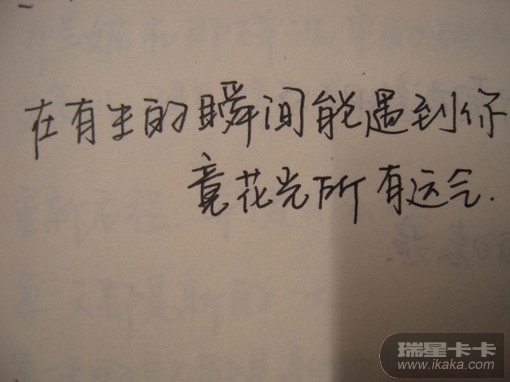 在有生的瞬间能遇到你
竟花光所有运气.
瑞星卡卡
www.ikaka.com